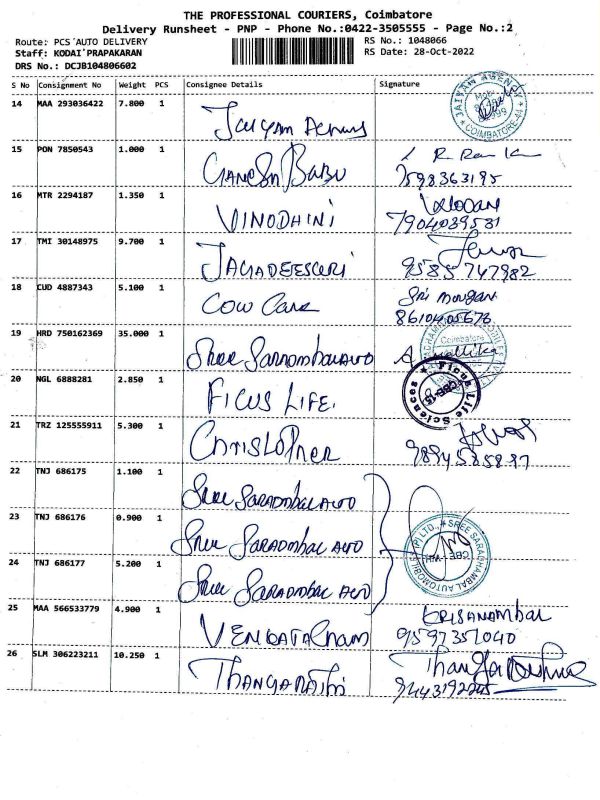 THE PROFESSIONAL COURIERS, Coimbatore
Delivery Runsheet - PNP - Phone No.:0422-3505555 - Page No.:2
Route: PCS'AUTO DELIVERY RS No.: 1048066
Staff: KODAI'PRAPAKARAN RS Date: 28-Oct-2022
DRS No.: DCJB104806602
S No Consignment No Weight PCS Consignee Details Signature
14 MAA 293036422 7.800 1 JAIYAM AGENCY COIMBATORE-44
15 PON 7850543 1.000 1 GANESH BABU
7598363195
16 MTR 2294187 1.350 1 VINODHINI
7904039531
17 TMI 30148975 9.700 1 JAGADEESWRI
9585747982
18 CUD 4887343 5.100 1 COW CARE Sri Morgan
8610405676
19 HRD 750162369 35.000 1 Coimbatore
20 NGL 6888281 2.850 1 FICUS LIFE. Ficus Life Sciences CBE-15
21 TRZ 125555911 5.300 1 CHRISTOPHER
22 TNJ 686175 1.100 1 SREE SARADMBAL AUTO
23 TNJ 686176 0.900 1 SREE SARADMBAL AUTO
24 TNJ 686177 5.200 1 SREE SARADMBAL AUTO SREE SARADHAMBAL AUTOMOBILES (P) LTD.,
25 MAA 566533779 4.900 1
9597351040
26 SLM 306223211 10.250 1